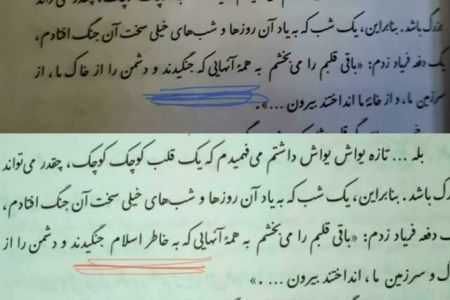 بزرگ باشد. بنابراین، یک شب که به یاد آن روزها و شب‌های خیلی سخت آن جنگ افتادم،
یک دفعه فریاد زدم: «باقی قلبم را می‌بخشم به همۀ آنهایی که جنگیدند و دشمن را از خاک ما، از
سرزمین ما، و از خانۀ ما انداختند بیرون ...».
بله ... تازه یواش یواش داشتم می‌فهمیدم که یک قلب کوچک کوچک، چقدر می‌تواند
بزرگ باشد. بنابراین، یک شب که به یاد آن روزها و شب‌های خیلی سخت آن جنگ افتادم،
یک دفعه فریاد زدم: «باقی قلبم را می‌بخشم به همۀ آنهایی که به خاطر اسلام جنگیدند و دشمن را از
ک و سرزمین ما، انداختند بیرون ... .»